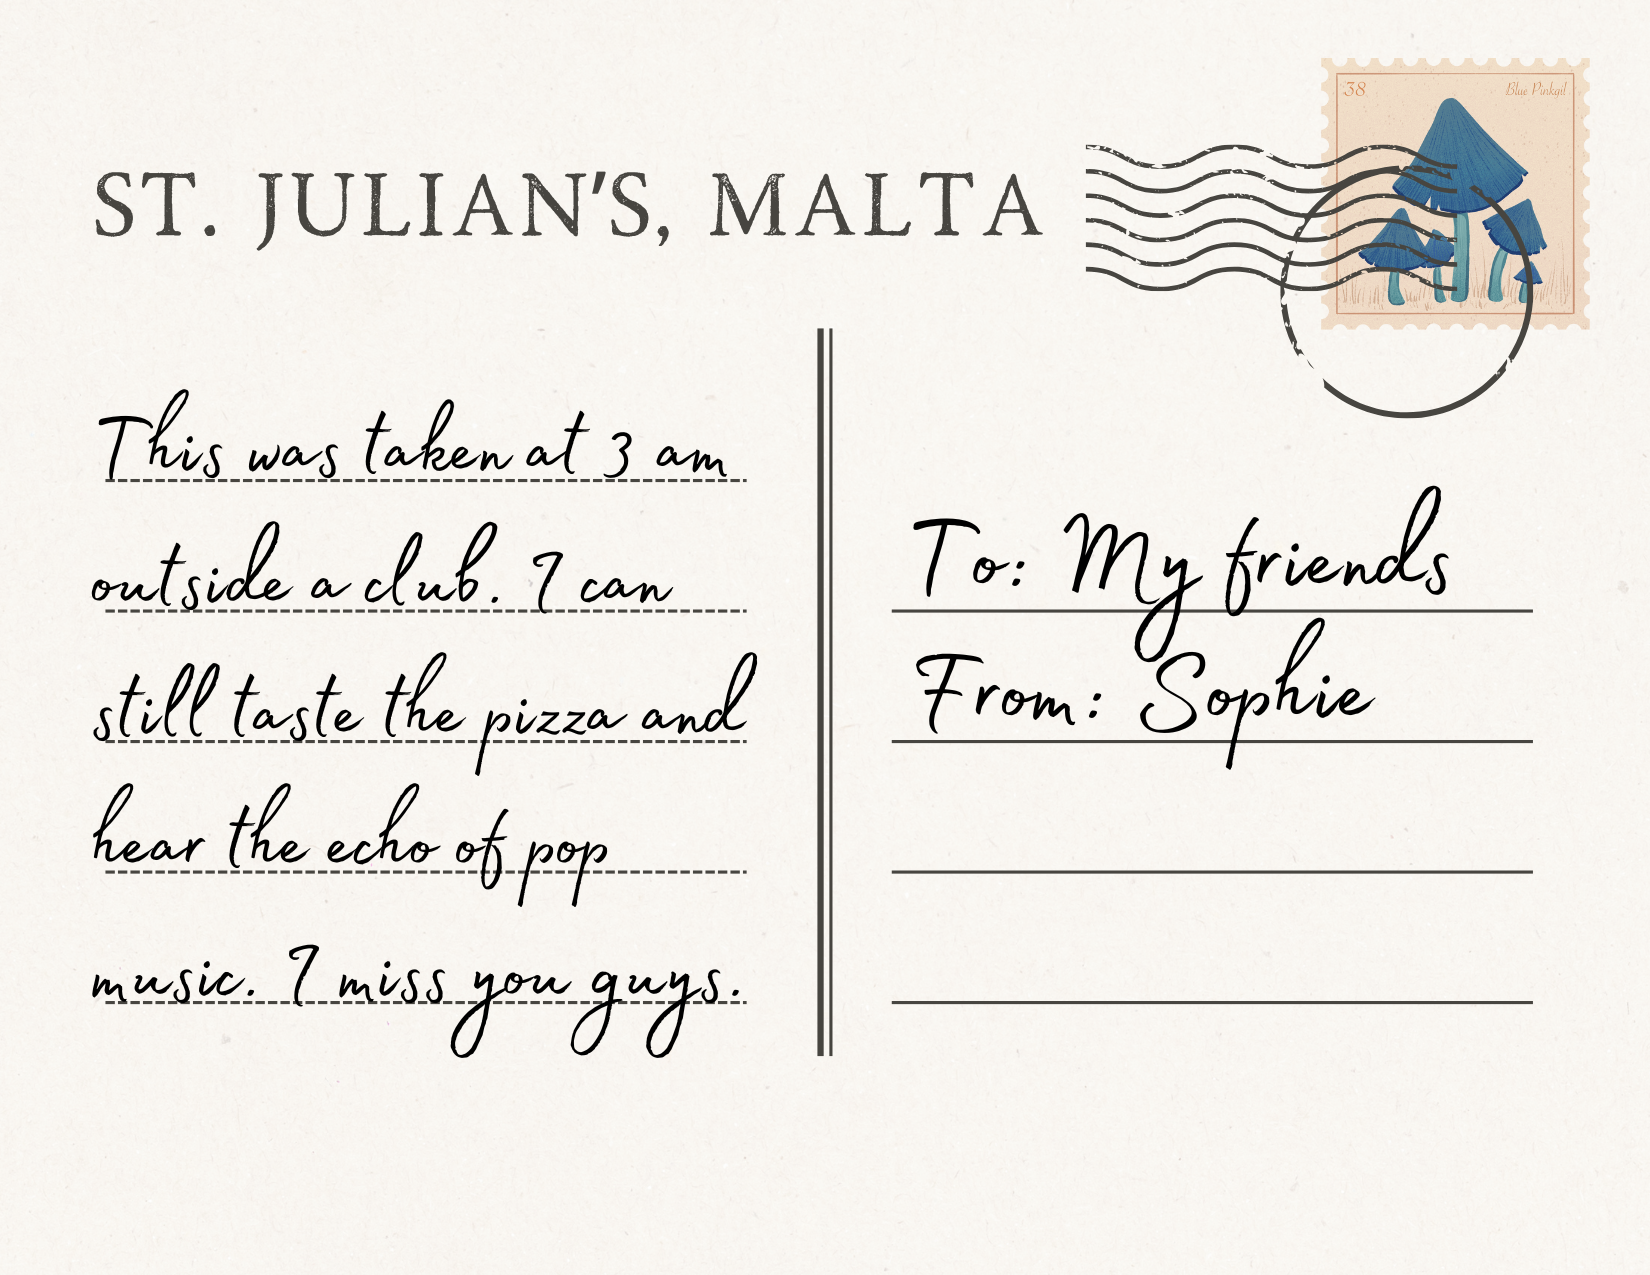 38
Blue Pinkgil
ST. JULIAN'S, MALTA
This was taken at 3 am
outside a club. I can
still taste the pizza and
hear the echo of pop
music. I miss you guys.
To: My friends
From: Sophie